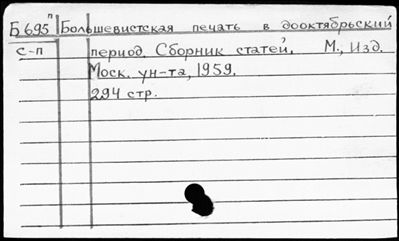 Б695п Большевистская печать в дооктябрьский
с-п период. Сборник статей. М., Изд.
Моск. ун-та, 1959.
294 стр.